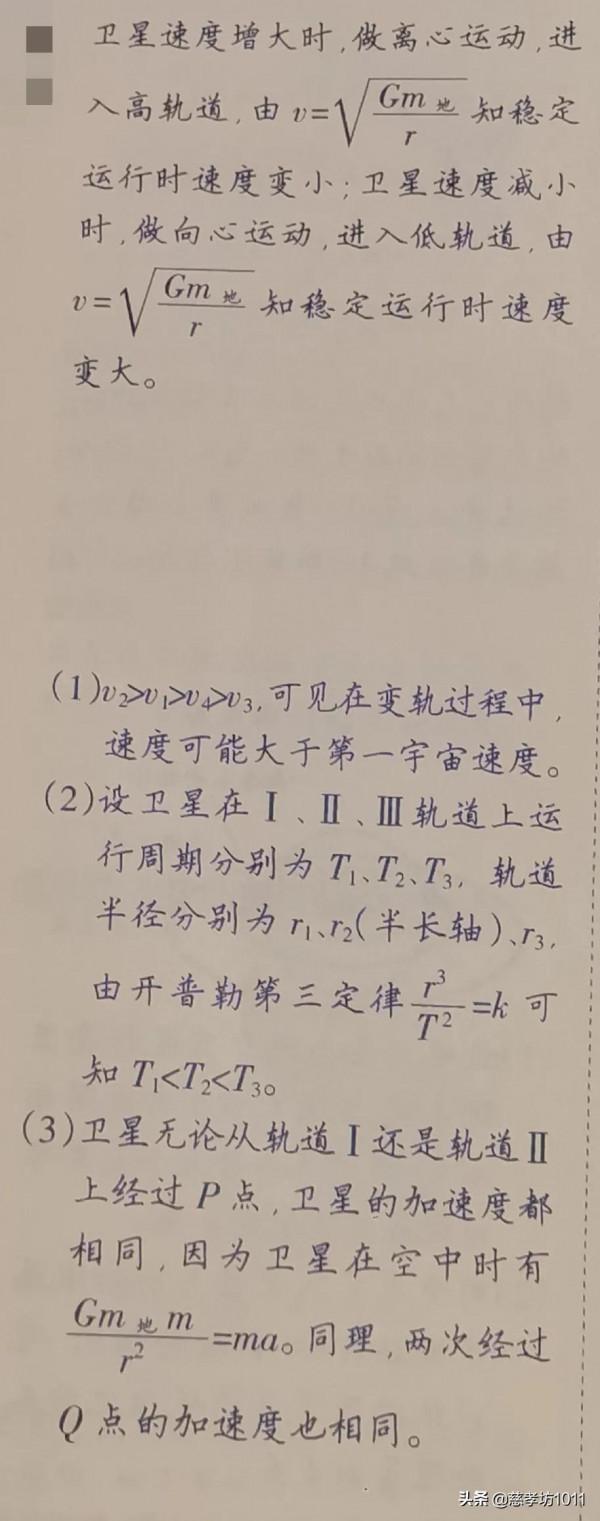 卫星速度增大时,做离心运动,进
入高轨道,由 v=√(Gm地/r) 知稳定
运行时速度变小;卫星速度减小
时,做向心运动,进入低轨道,由
v=√(Gm地/r) 知稳定运行时速度
变大。
(1)v₂>v₁>v₄>v₃,可见在变轨过程中,
速度可能大于第一宇宙速度。
(2)设卫星在Ⅰ、Ⅱ、Ⅲ轨道上运
行周期分别为 T₁、T₂、T₃, 轨道
半径分别为 r₁、r₂(半长轴)、r₃,
由开普勒第三定律 r³/T²=k 可
知 T₁<T₂<T₃。
(3)卫星无论从轨道Ⅰ还是轨道Ⅱ
上经过 P 点,卫星的加速度都
相同,因为卫星在空中时有
Gm地m/r²=ma。同理,两次经过
Q 点的加速度也相同。
头条 @慈孝坊1011